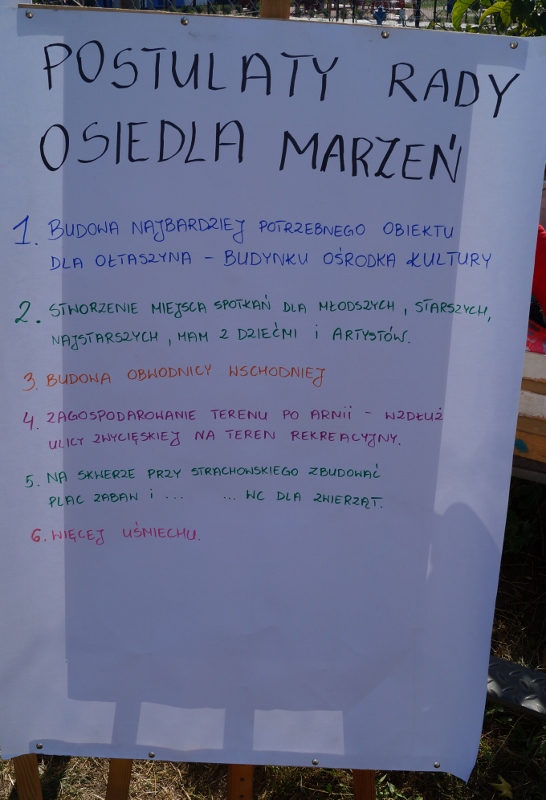 POSTULATY RADY
OSIEDLA MARZEŃ
1. BUDOWA NAJBARDZIEJ POTRZEBNEGO OBIEKTU
DLA OŁTASZYNA – BUDYNKU OŚRODKA KULTURY
2. STWORZENIE MIEJSCA SPOTKAŃ DLA MŁODSZYCH, STARSZYCH,
NAJSTARSZYCH, MAM Z DZIEĆMI i ARTYSTÓW.
3. BUDOWA OBWODNICY WSCHODNIEJ
4. ZAGOSPODAROWANIE TERENU PO ARMII – WZDŁUŻ
ULICY ZWYCIĘSKIEJ NA TEREN REKREACYJNY.
5. NA SKWERZE PRZY STRACHOWSKIEGO ZBUDOWAĆ
PLAC ZABAW i ... ... WC DLA ZWIERZĄT.
6. WIĘCEJ UŚMIECHU.